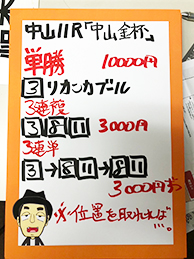 中山11R「中山金杯」
単勝 10000円
3 リカンカブール
3連複
3 8 11 3000円
3連単
3→8 11→8 11
3000円お
※位置を取れれば…。